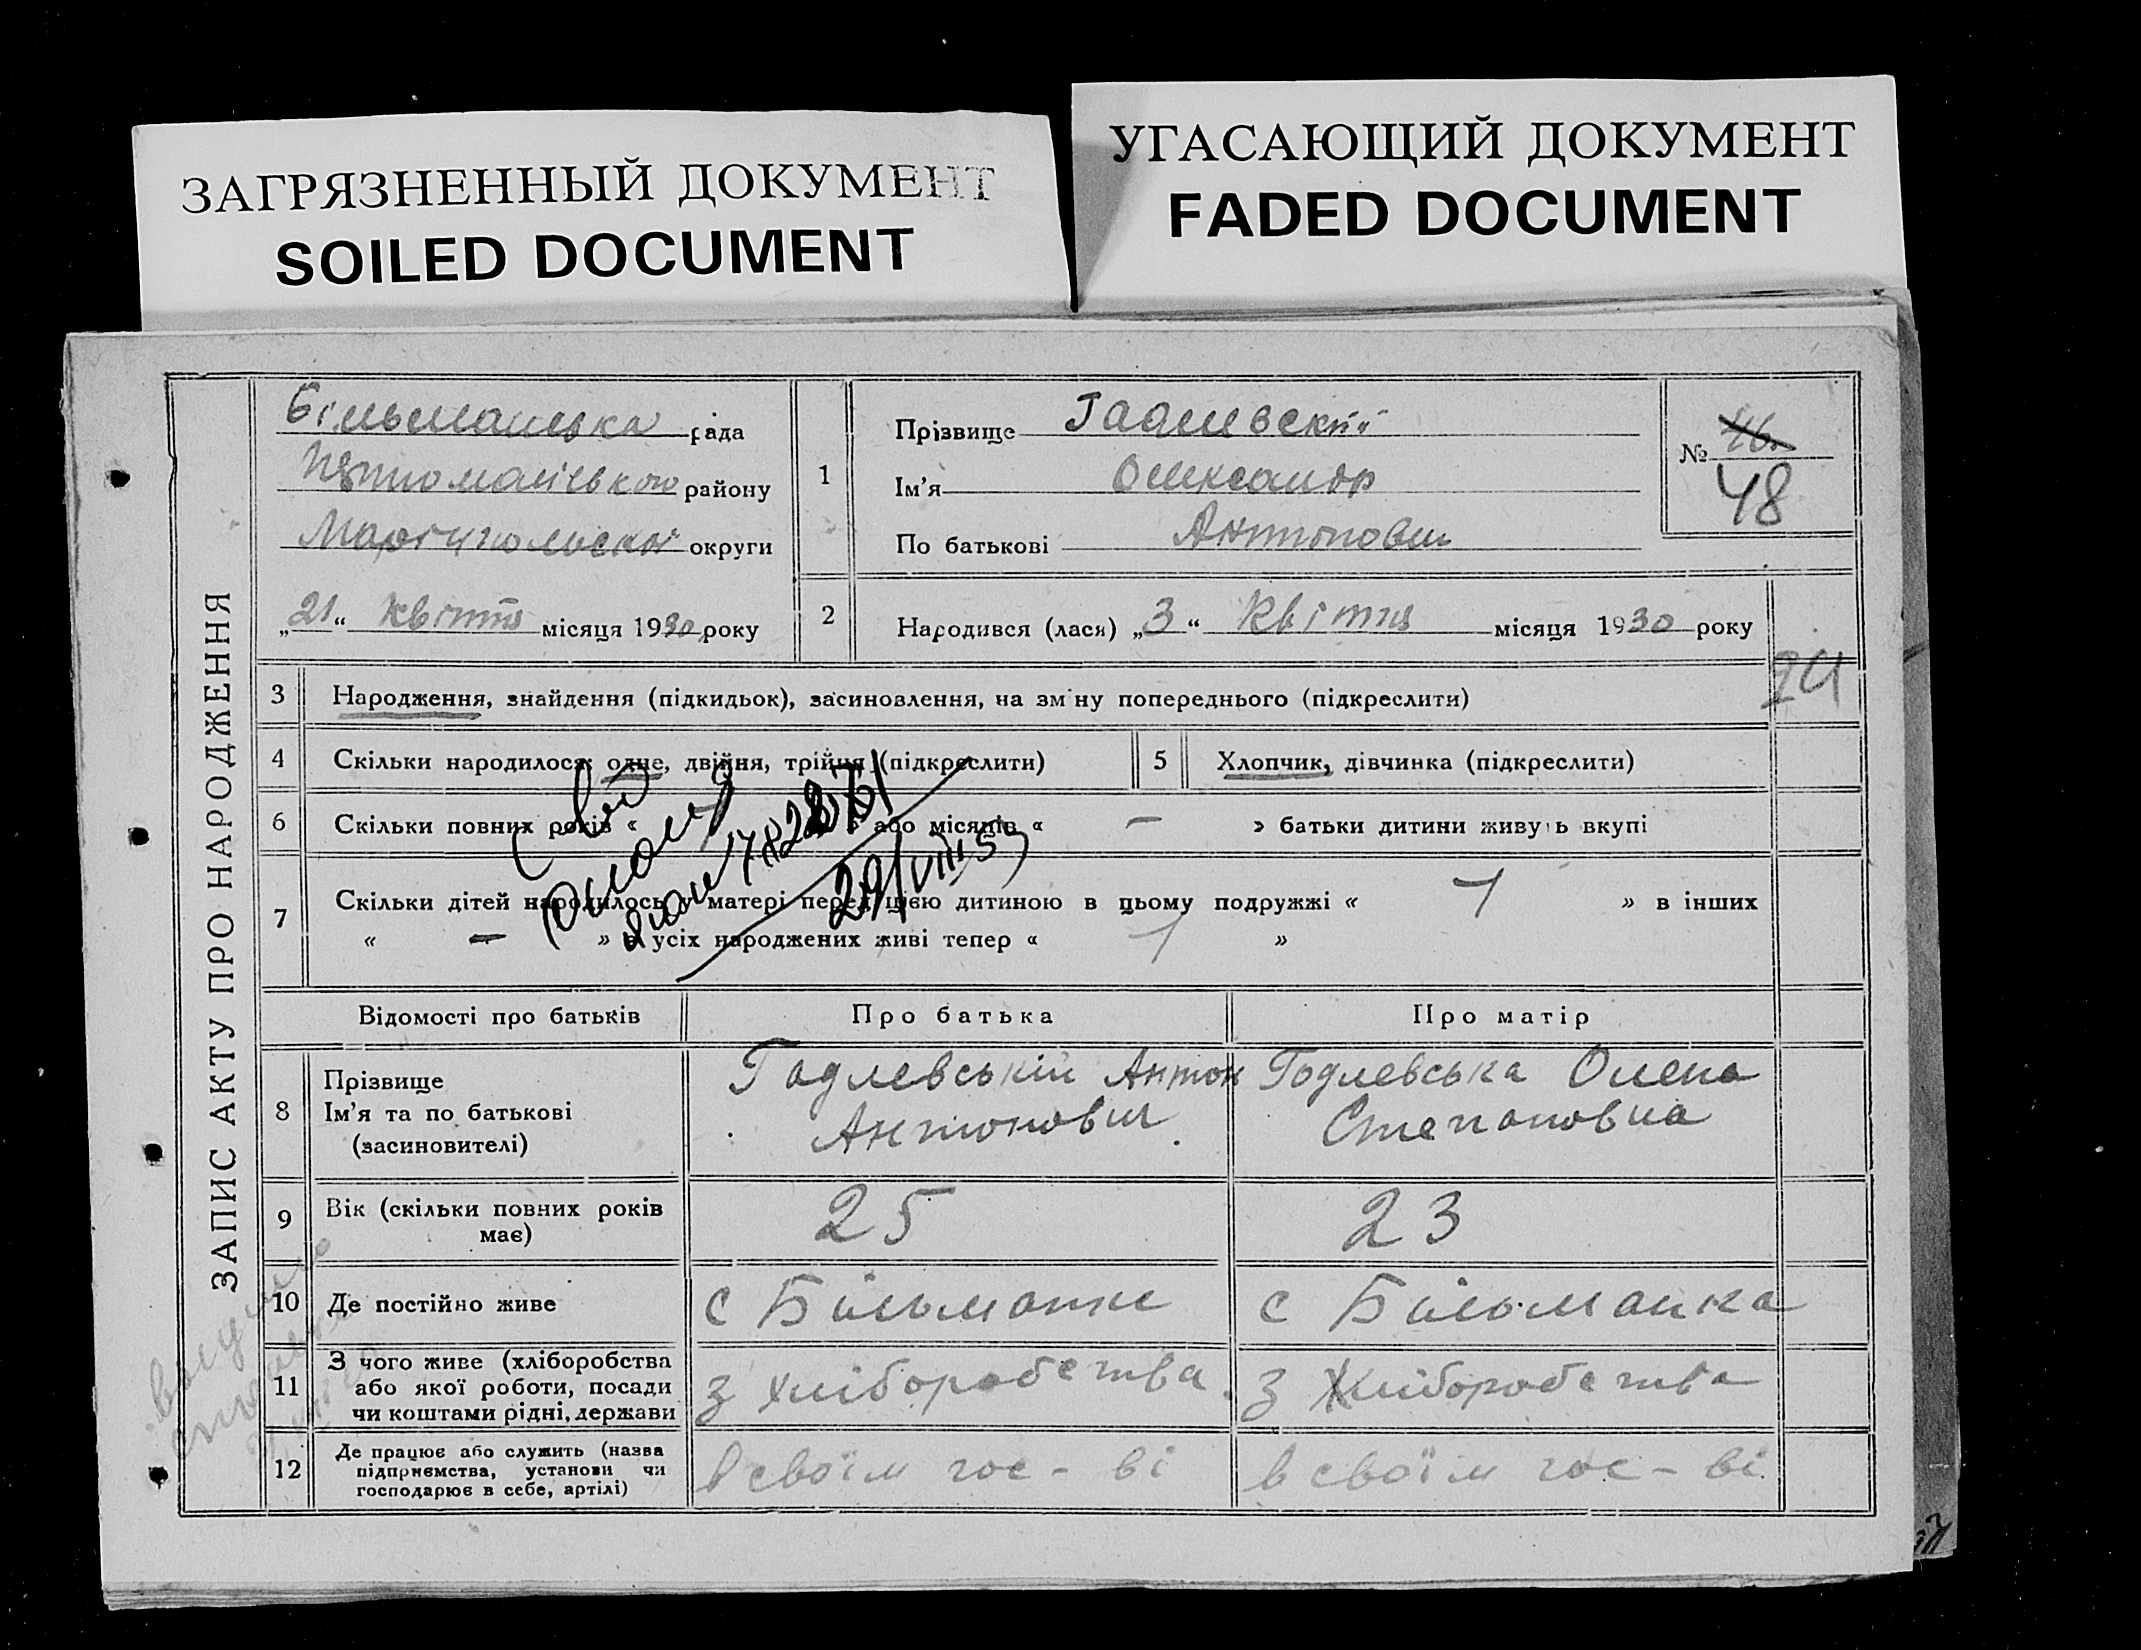 ЗАГРЯЗНЕННЫЙ ДОКУМЕНТ
SOILED DOCUMENT
УГАСАЮЩИЙ ДОКУМЕНТ
FADED DOCUMENT
ЗАПИС АКТУ ПРО НАРОДЖЕННЯ
рада
району
округи
„21“ Квітня місяця 1930 року
1
Прізвище
Ім'я Олександр
По батькові Антонович
№ 46
48
2 Народився (лася) „3“ Квітня місяця 1930 року
24
3 Народження, знайдення (підкидьок), засиновлення, на зміну попереднього (підкреслити)
4 Скільки народилося: одне, двійня, трійня (підкреслити)
5 Хлопчик, дівчинка (підкреслити)
6 Скільки повних років « » або місяців « — » батьки дитини живуть вкупі
7 Скільки дітей народилось у матері перед цією дитиною в цьому подружжі « 1 » в інших
« — » з усіх народжених живі тепер « 1 »
29/VIII 5
Відомості про батьків
Про батька
Про матір
8 Прізвище
Ім'я та по батькові
(засиновителі)
Годлевській Антон
Антонович
Годлевська Олена
Степановна
9 Вік (скільки повних років
має)
25
23
10 Де постійно живе
с Більманке
с Більманка
11 З чого живе (хліборобства
або якої роботи, посади
чи коштами рідні, держави
з хліборобства
з Хліборобства
12 Де працює або служить (назва
підприємства, установи чи
господарює в себе, артілі)
в своїм гос-ві
в своїм гос-ві